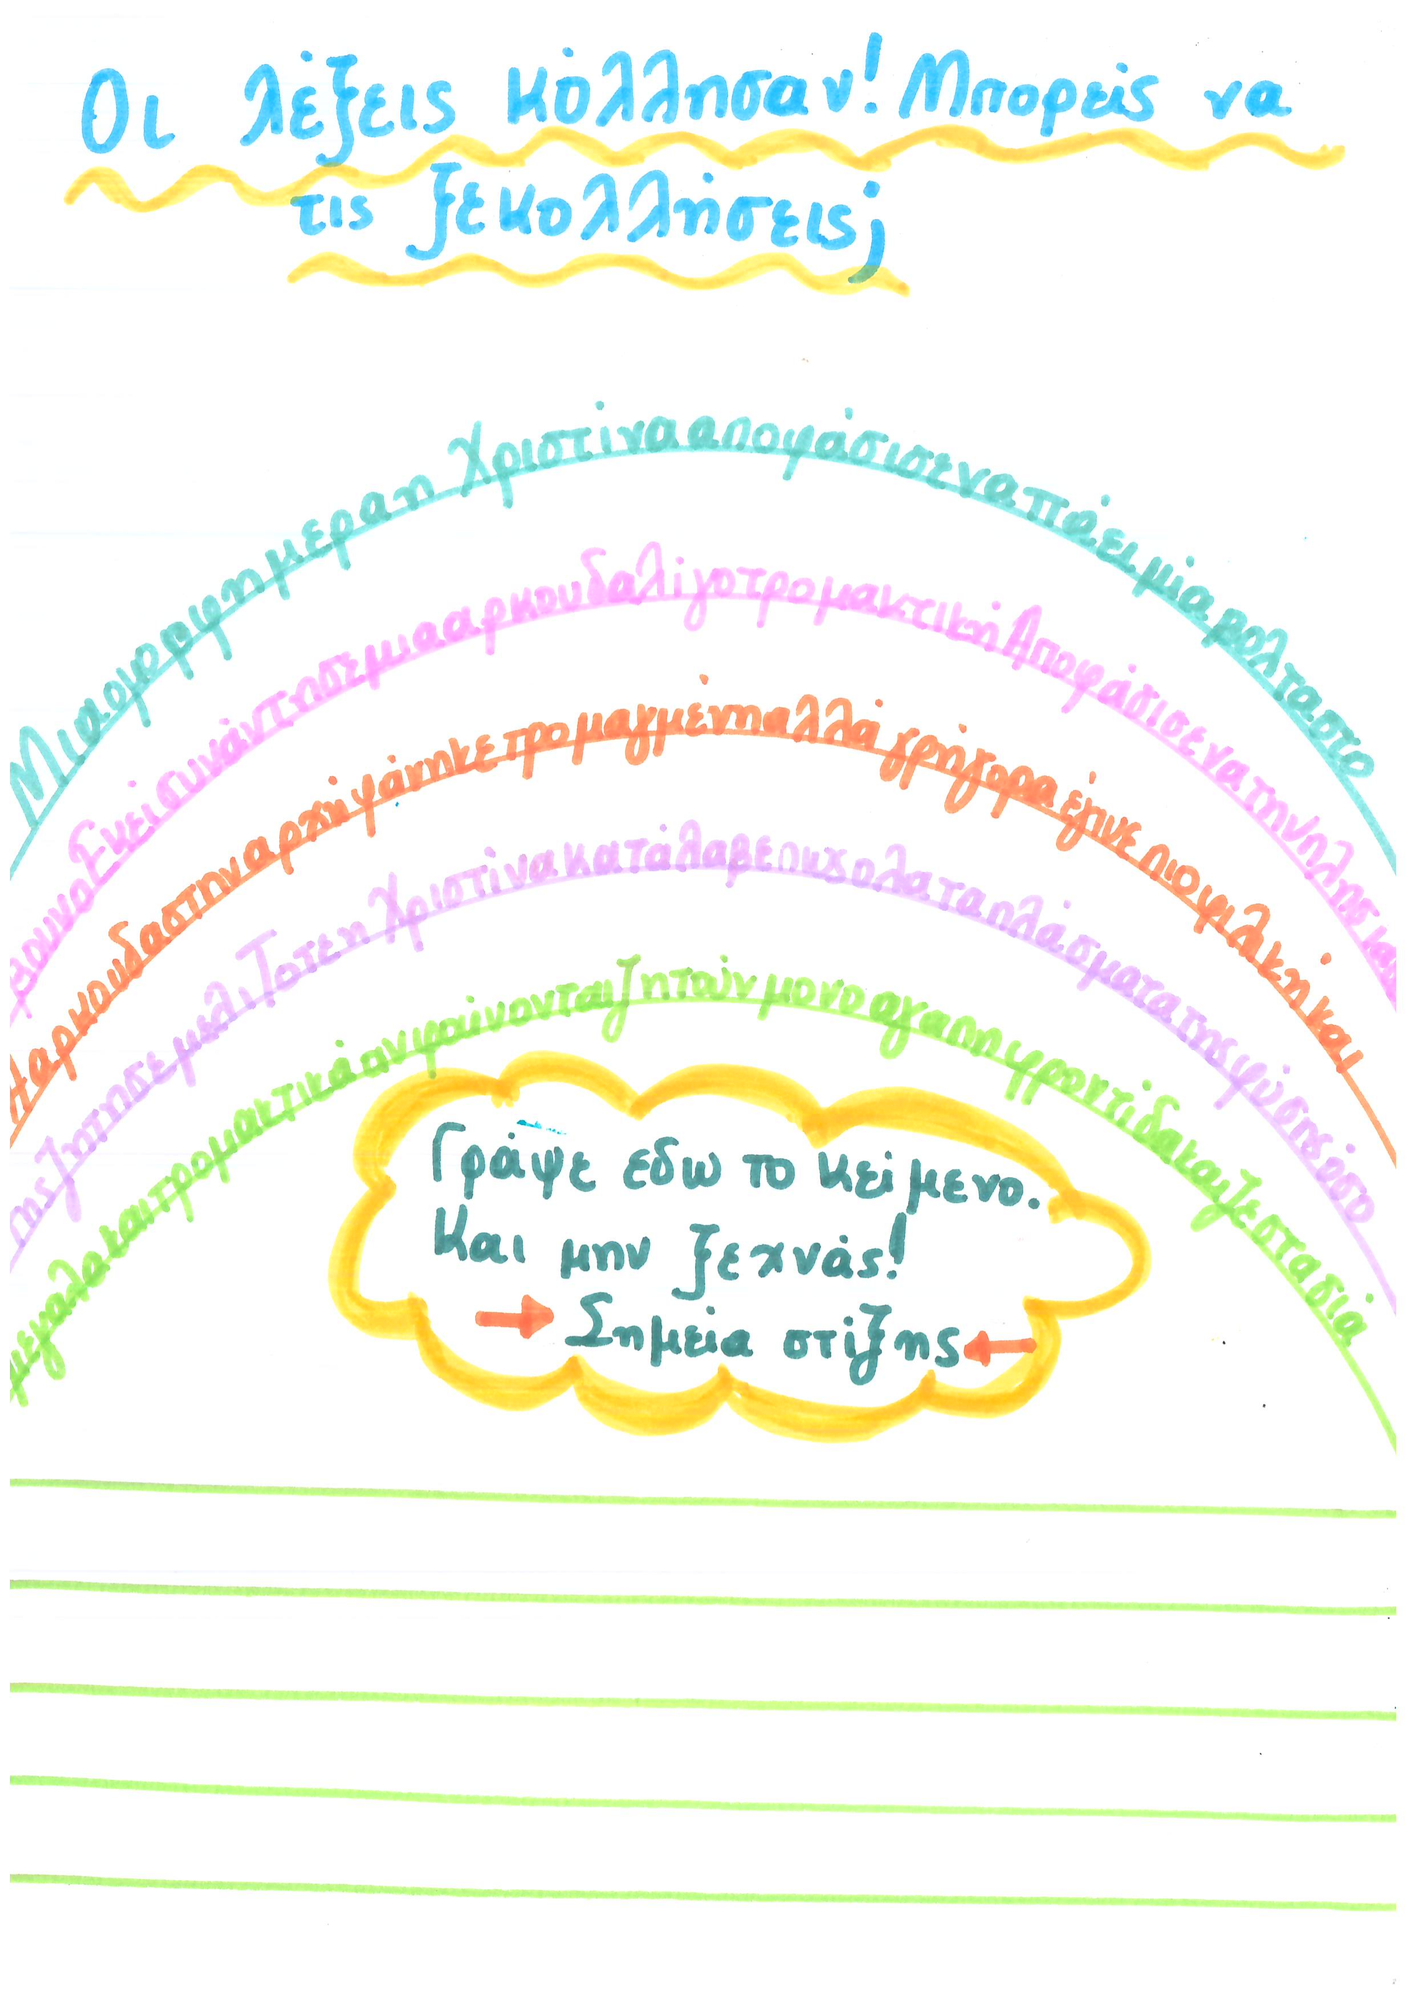 Οι λέξεις κόλλησαν! Μπορείς να
τις ξεκολλήσεις;
Μιαομορφημεραη Χριστίνααποφάσισεναπάειμίαβολταστο
βουνοΕκείσυνάντησεμιααρκουδαλίγοτρομακτικήΑποφάσισενατηνπλησιάσ
Ηαρκουδαστηναρχήφάνηκετρομαγμένηαλλάγρήγοραέγινεπιοφιλικήκαι
τηςζητησεμελιΤοτεηΧριστίνακατάλαβεπωςολαταπλάσματατηςφύσηςόσο
μεγαλακαιτρομακτικάανφαίνονταιζητούνμονοαγαπηφροντιδακαιζεσταδιά
Γράψε εδω το κείμενο.
Και μην ξεχνάς!
Σημεία στίξης